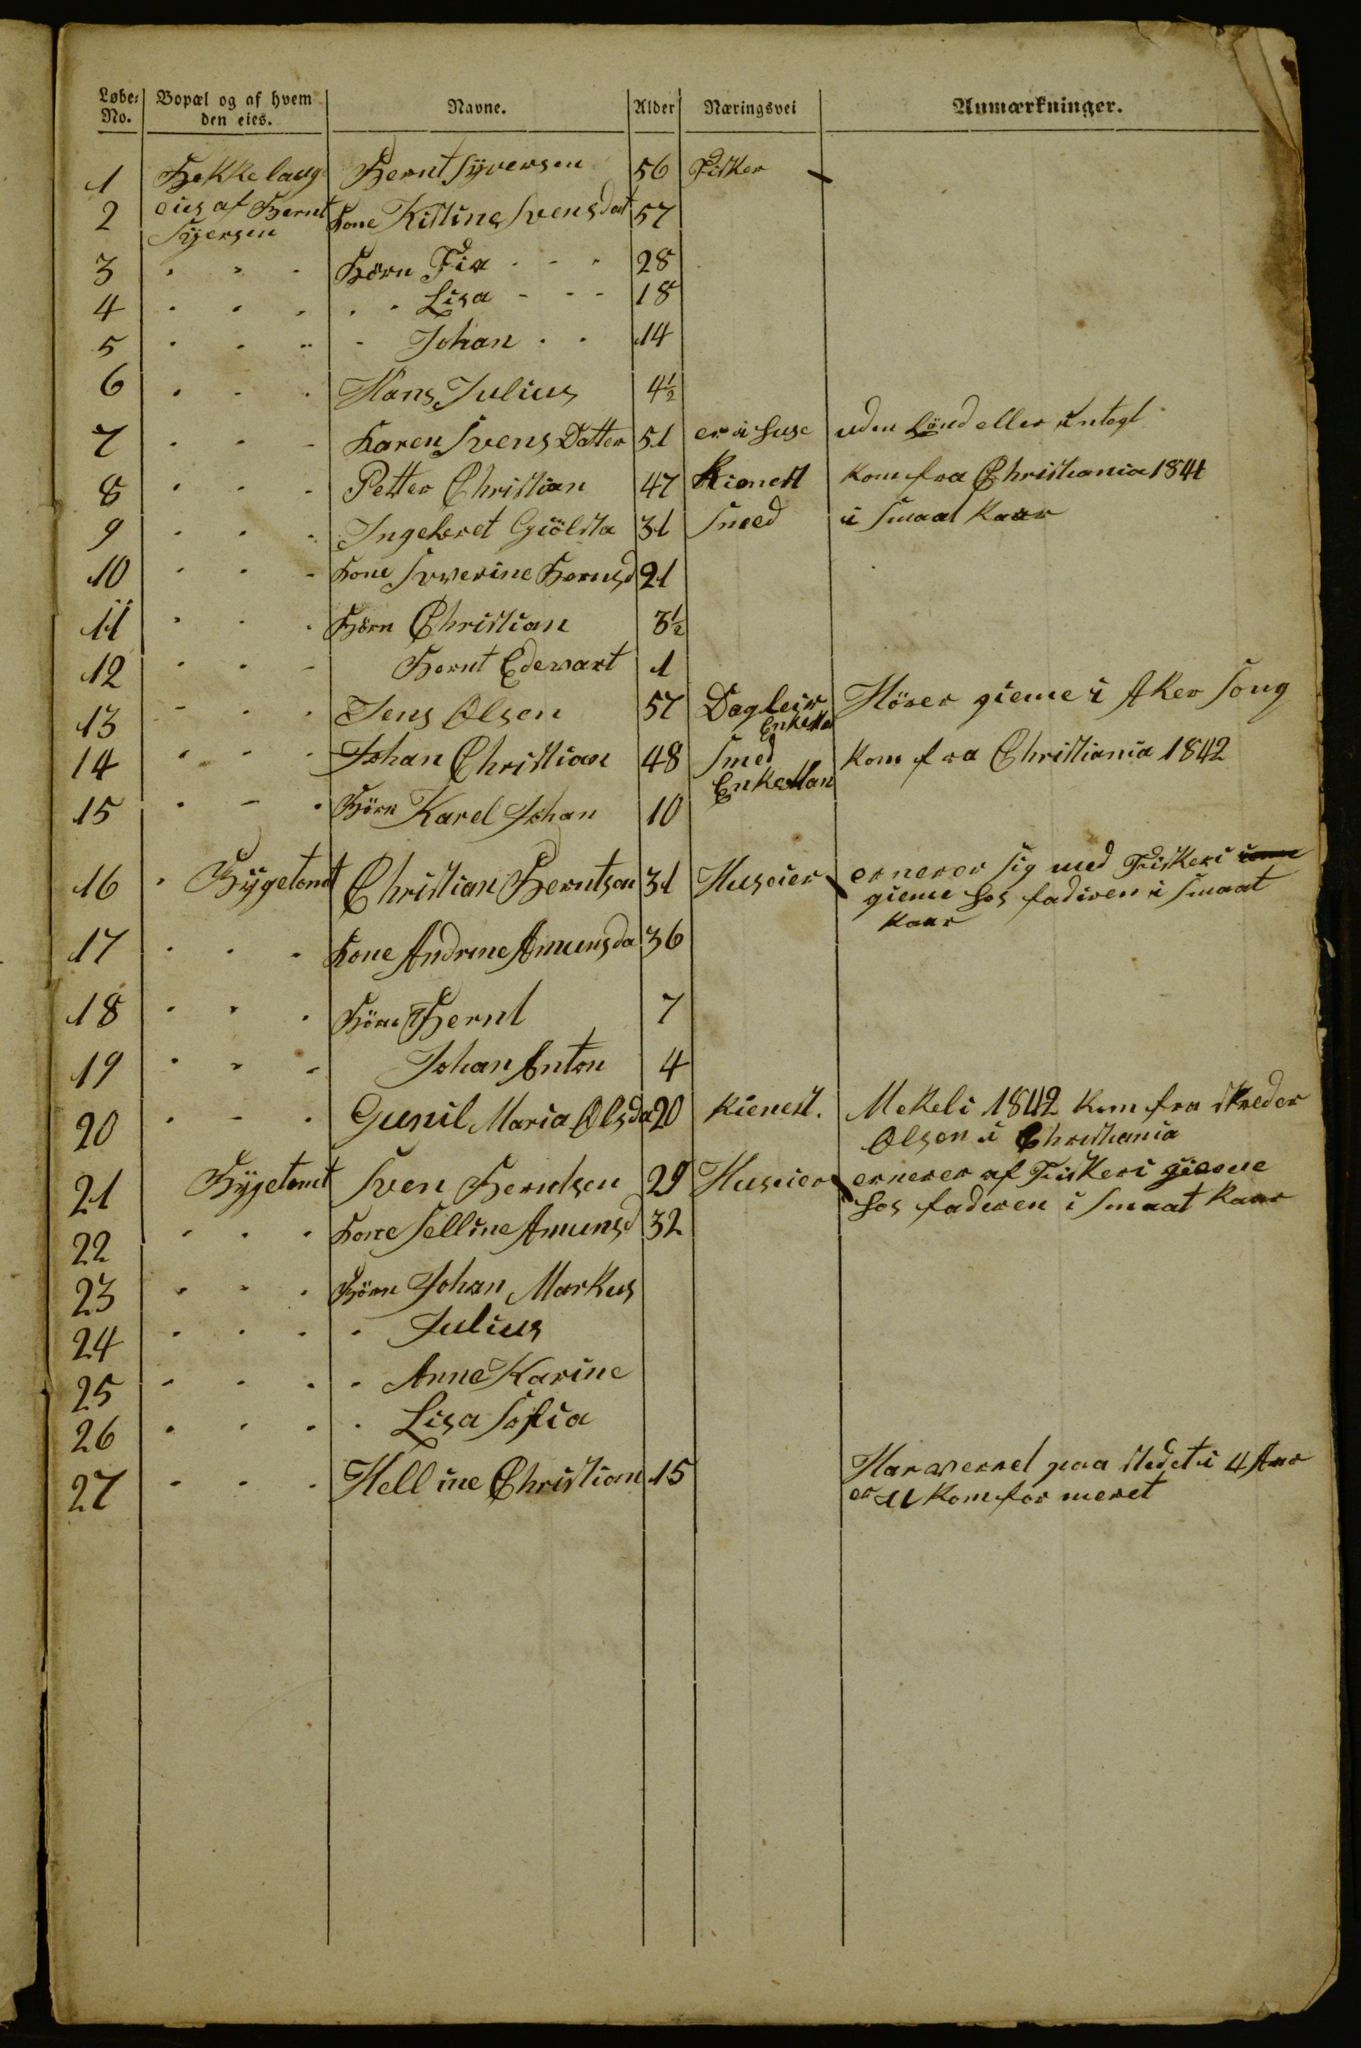 Løbe- No. Bopæl og af hvem den eies. Navne. Alder Næringsvei Anmærkninger.
1 Bekkelaug Bernt Syversen 56 Fisker
2 eies af Bernt Syersen kone Kistine Svensdat 57
3 " " " Børn Fia - - - 28
4 " " " " " Lisa - - - 18
5 " " " " Johan - - 14
6 " " " Hans Julius 4½
7 " " " Karen Svens Datter 51 er i huse uden Lönd eller Integt
8 " " " Petter Christian 47 kom fra Christiania 1841
9 " " " Ingebret Giölsta 31 Smed i Smaat Kaar
10 " " " kone Severine Bernsd 21
11 " " " Börn Christian 3½
12 " " " Bernt Edewart 1
13 " " " Jens Olsen 57 Dagleir Enkema Hörer gieme i Aker Song
14 " " " Johan Christian 48 Smed Enkeman kom fra Christiania 1842
15 " " " Börn Karel Johan 10
16 " Bygetomt Christian Berntsen 31 Huseier ernerer sig med Fiskeri gieme hos fadiren i Smaat kaar
17 " " " kone Andrine Amunsda 36
18 " " " Börn Bernt 7
19 " " " Johan Anton 4
20 " " " Gunil Maria Olsda 20 kienest. Mekeli 1842 kom fra skreder Olsen i Christiania
21 Bygetomt Sven Berntsen 29 Huseier ernerer af Fiskeri gieme hos faderen i Smaat kaar
22 " " " kone Selline Amunsd 32
23 " " " Börn Johan Markus
24 " " " " Julius
25 " " " " Anne Karine
26 " " " " Lisa Sofia
27 " " " Helline Christian 15 Har verret paa stedet i 4 Aar er u komformeret